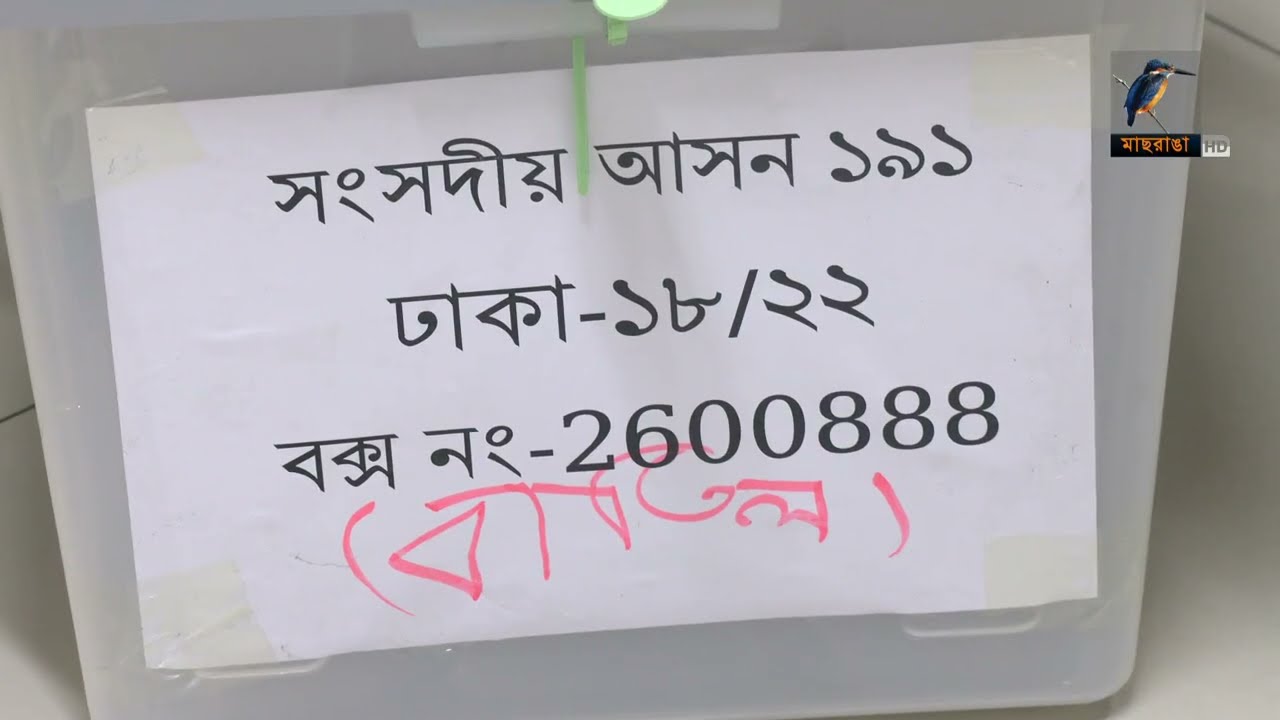 সংসদীয় আসন ১৯১
ঢাকা-১৮/২২
বক্স নং-2600888
(বাতিল)
মাছরাঙা HD